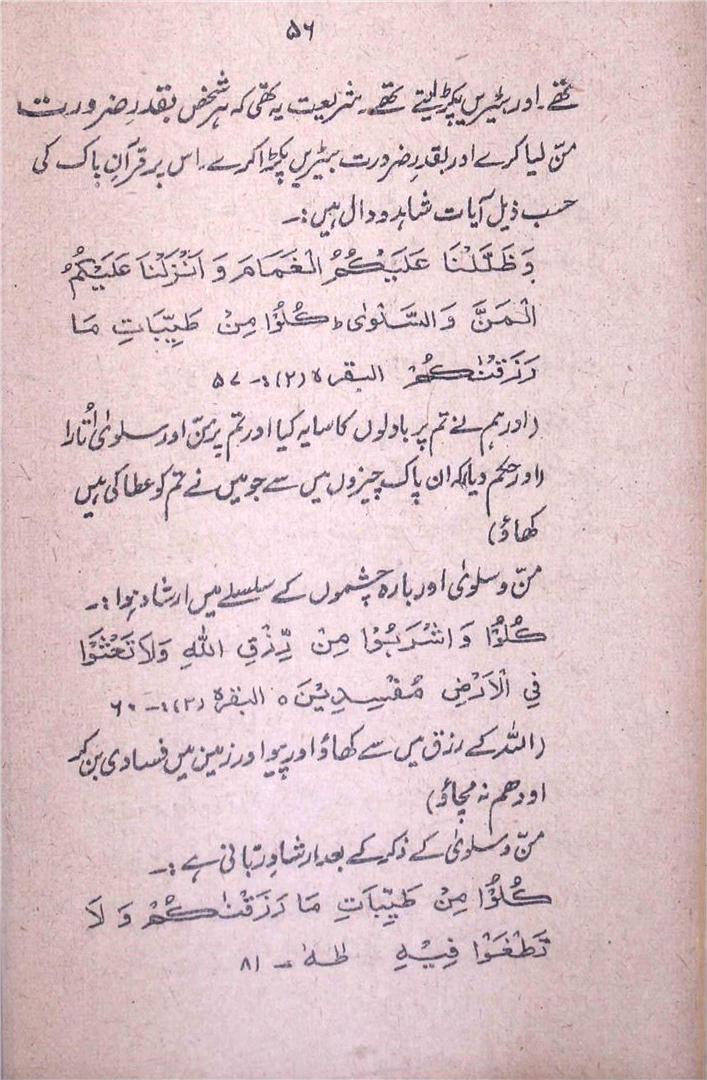 ۵۶
تھے۔ اور بٹیریں پکڑ لیتے تھے۔ شریعت یہ تھی کہ ہر شخص بقدرِ ضرورت
منّ لیا کرے اور بقدرِ ضرورت بٹیریں پکڑا کرے۔ اس پر قرآنِ پاک کی
حسب ذیل آیات شاہد و دال ہیں:۔
وَظَلَّلْنَا عَلَيْكُمُ الْغَمَامَ وَ اَنْزَلْنَا عَلَيْكُمُ
الْمَنَّ وَالسَّلْوٰى ط كُلُوْا مِنْ طَيِّبَاتِ مَا
رَزَقْنٰكُمْ البقرہ (۲):۔ ۵۷
(اور ہم نے تم پر بادلوں کا سایہ کیا اور تم پر منّ اور سلویٰ اُتارا
(اور حکم دیا) کہ ان پاک چیزوں میں سے جو میں نے تم کو عطا کی ہیں
کھاؤ)
منّ و سلویٰ اور بارہ چشموں کے سلسلے میں ارشاد ہوا:۔
كُلُوْا وَ اشْرَبُوْا مِنْ رِّزْقِ اللّٰهِ وَلَا تَعْثَوْا
فِي الْاَرْضِ مُفْسِدِيْنَ ہ البقرۃ (۲):۔ ۶۰
(اللہ کے رزق میں سے کھاؤ اور پیو اور زمین میں فسادی بن کر
اودھم نہ مچاؤ)
منّ و سلویٰ کے ذکر کے بعد ارشادِ ربّانی ہے:۔
كُلُوْا مِنْ طَيِّبَاتِ مَا رَزَقْنٰكُمْ وَ لَا
تَطْغَوْا فِيْهِ طٰهٰ ۔ ۸۱